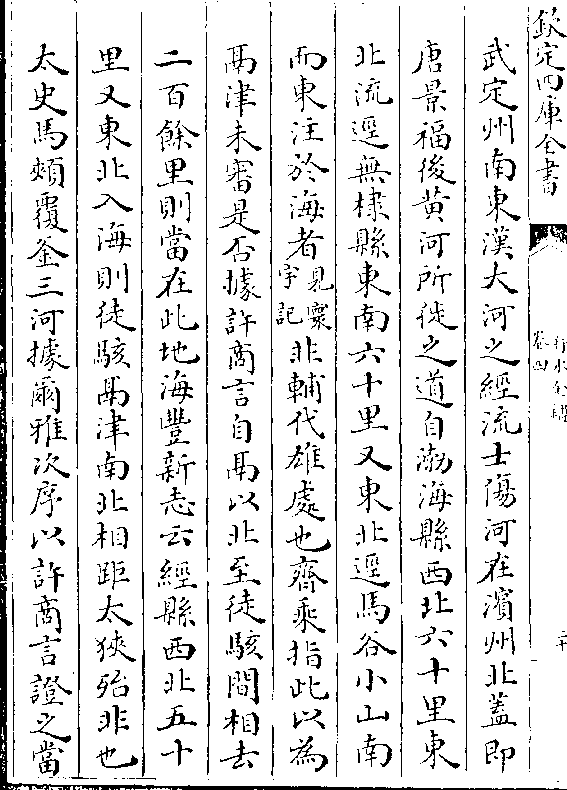 欽定四庫全書
行水金鑑
卷四
二十
武定州南東漢大河之經流士傷河在濱州北蓋即
唐景福後黄河所徙之道自渤海縣西北六十里東
北流逕無棣縣東南六十里又東北逕馬谷小山南
而東注於海者見寰宇記非輔代雄處也齊乘指此以為
鬲津未審是否據許商言自鬲以北至徒駭間相去
二百餘里則當在此地海豐新志云經縣西北五十
里又東北入海則徒駭鬲津南北相距太狹殆非也
太史馬頰覆釡三河據爾雅次序以許商言證之當